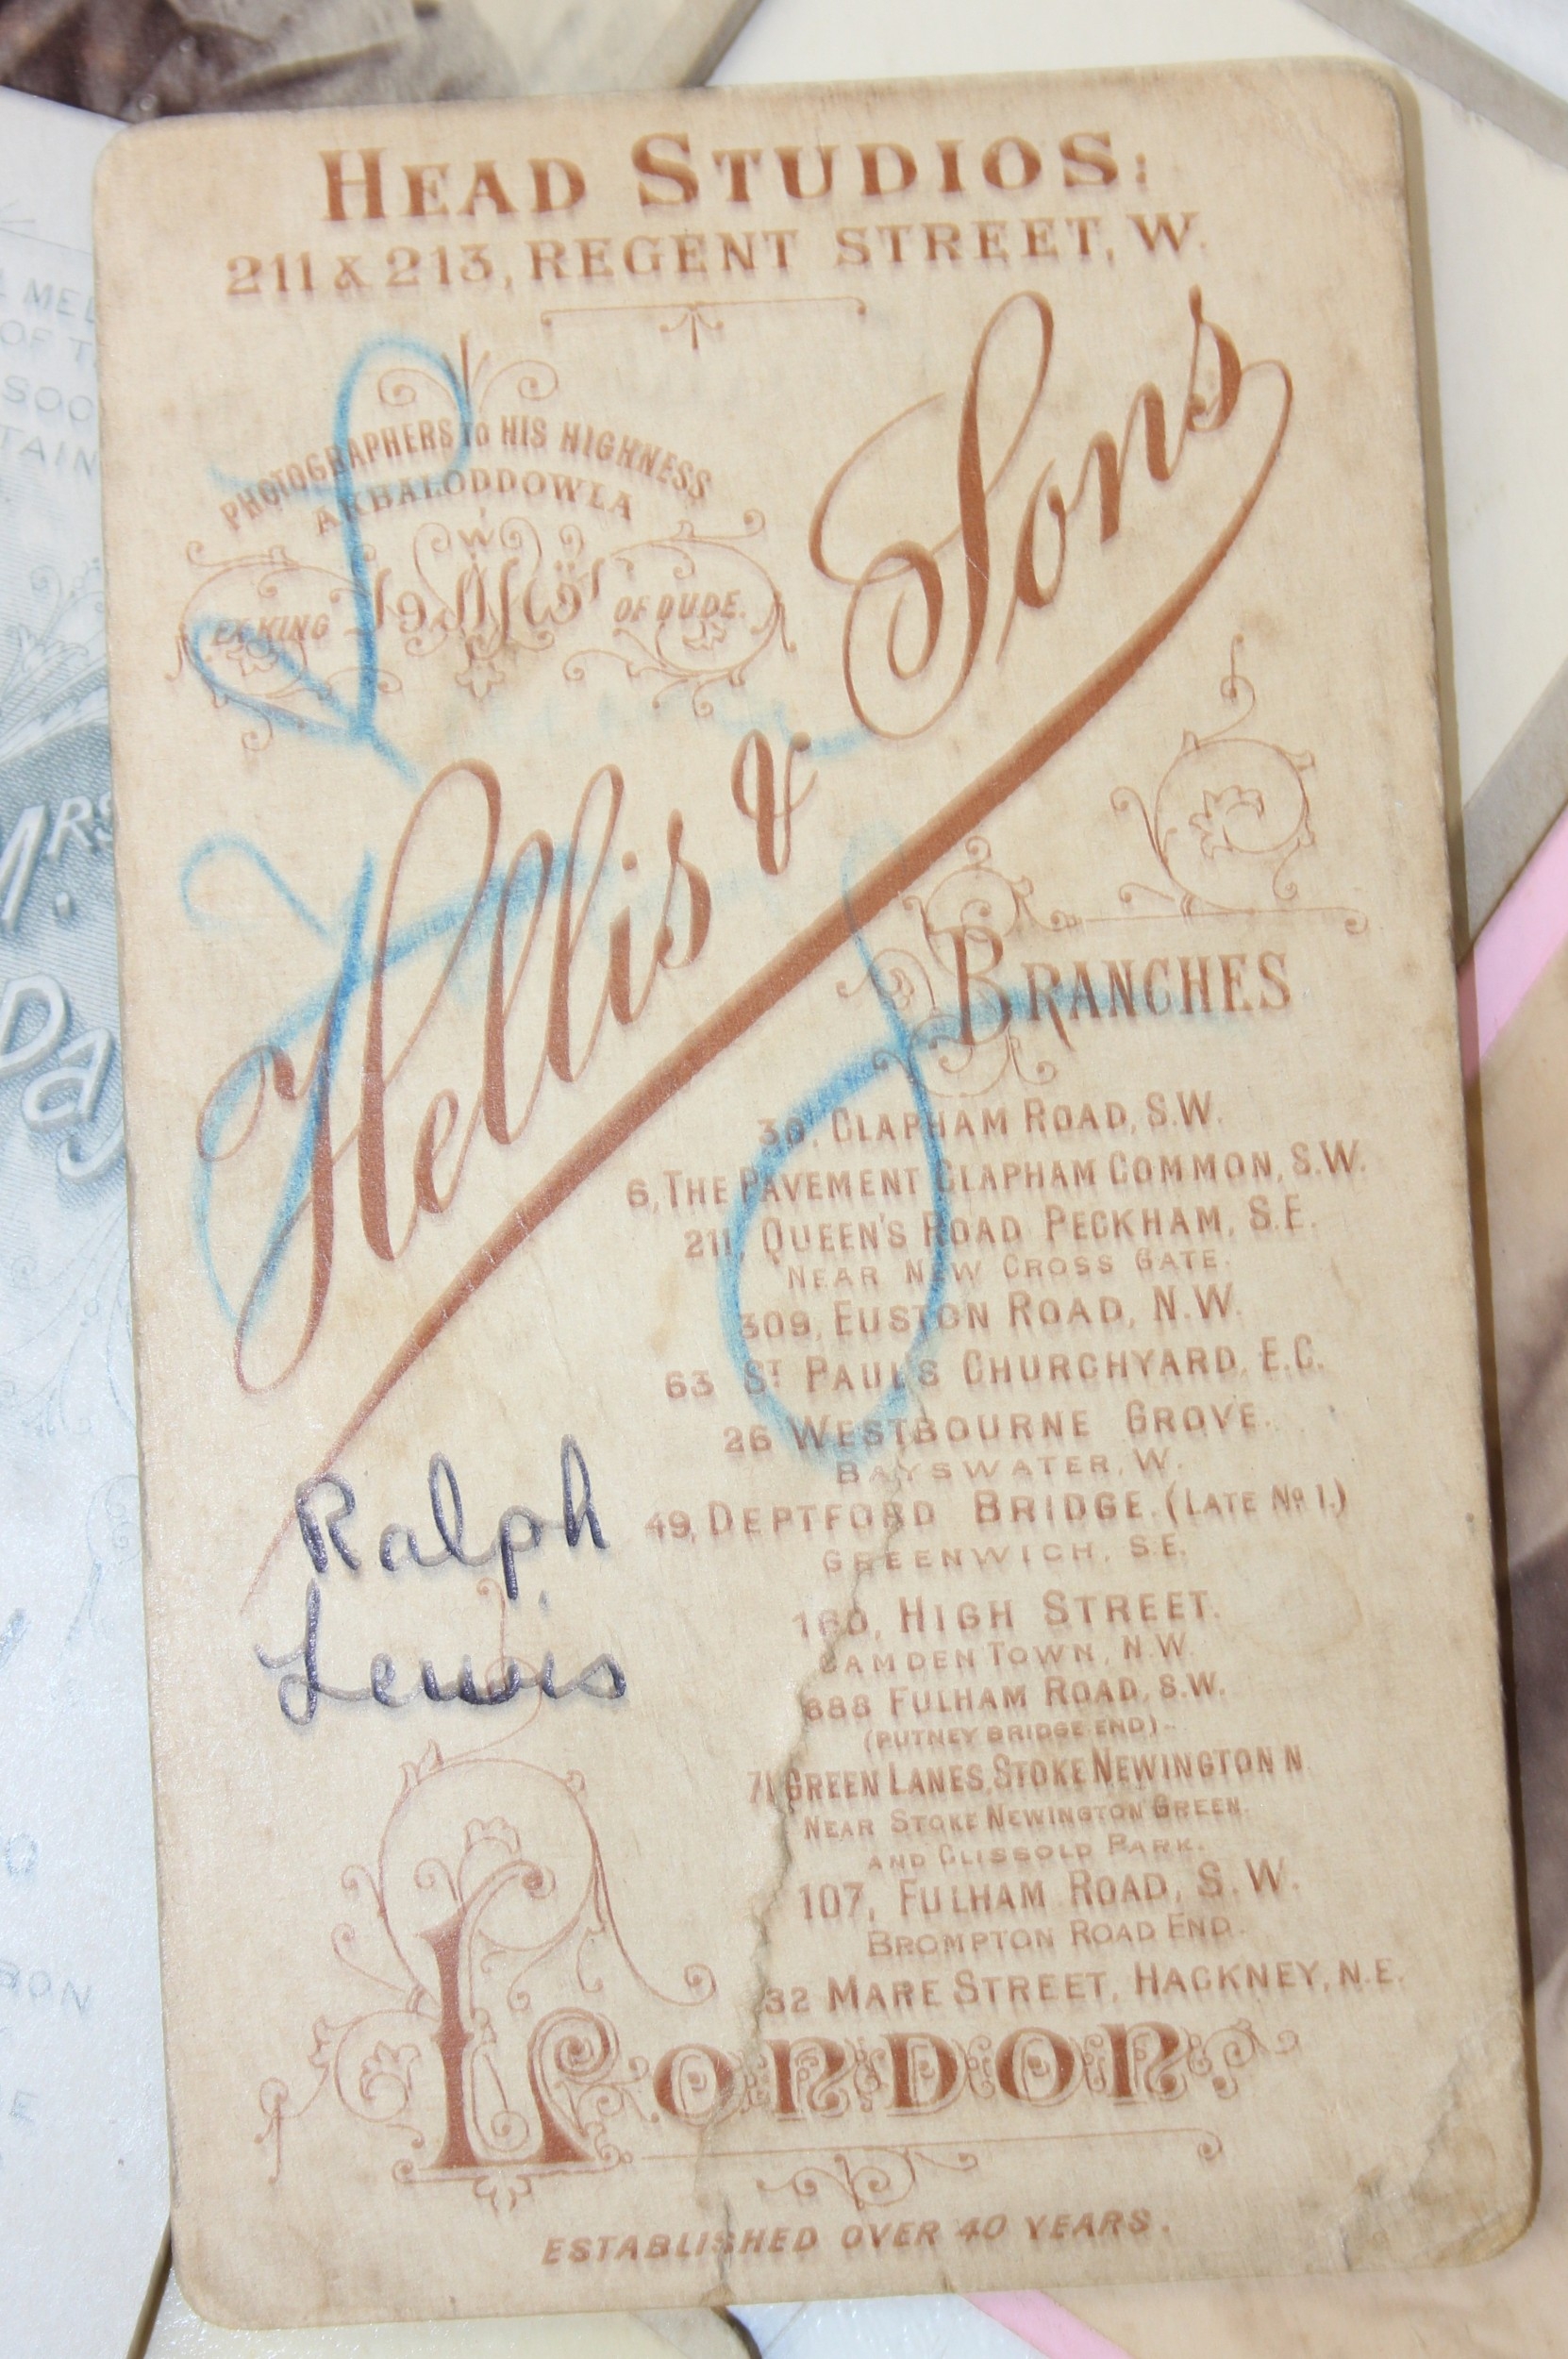 HEAD STUDIOS:
211 & 213, REGENT STREET, W.
PHOTOGRAPHERS TO HIS HIGHNESS
AKBALODDOWLA
EX KING OF OUDE.
Hellis & Sons
BRANCHES
30, CLAPHAM ROAD, S.W.
6, THE PAVEMENT CLAPHAM COMMON, S.W.
211, QUEEN'S ROAD PECKHAM, S.E.
NEAR NEW CROSS GATE.
309, EUSTON ROAD, N.W.
63 ST PAUL'S CHURCHYARD, E.C.
26 WESTBOURNE GROVE.
BAYSWATER, W.
49, DEPTFORD BRIDGE. (LATE No 1.)
GREENWICH, S.E.
160, HIGH STREET.
CAMDEN TOWN, N.W.
888 FULHAM ROAD, S.W.
(PUTNEY BRIDGE END)
71 GREEN LANES, STOKE NEWINGTON N
NEAR STOKE NEWINGTON GREEN.
AND CLISSOLD PARK.
107, FULHAM ROAD, S.W.
BROMPTON ROAD END.
32 MARE STREET, HACKNEY, N.E.
Ralph
Lewis
LONDON
ESTABLISHED OVER 40 YEARS.
MRS
M.
Day